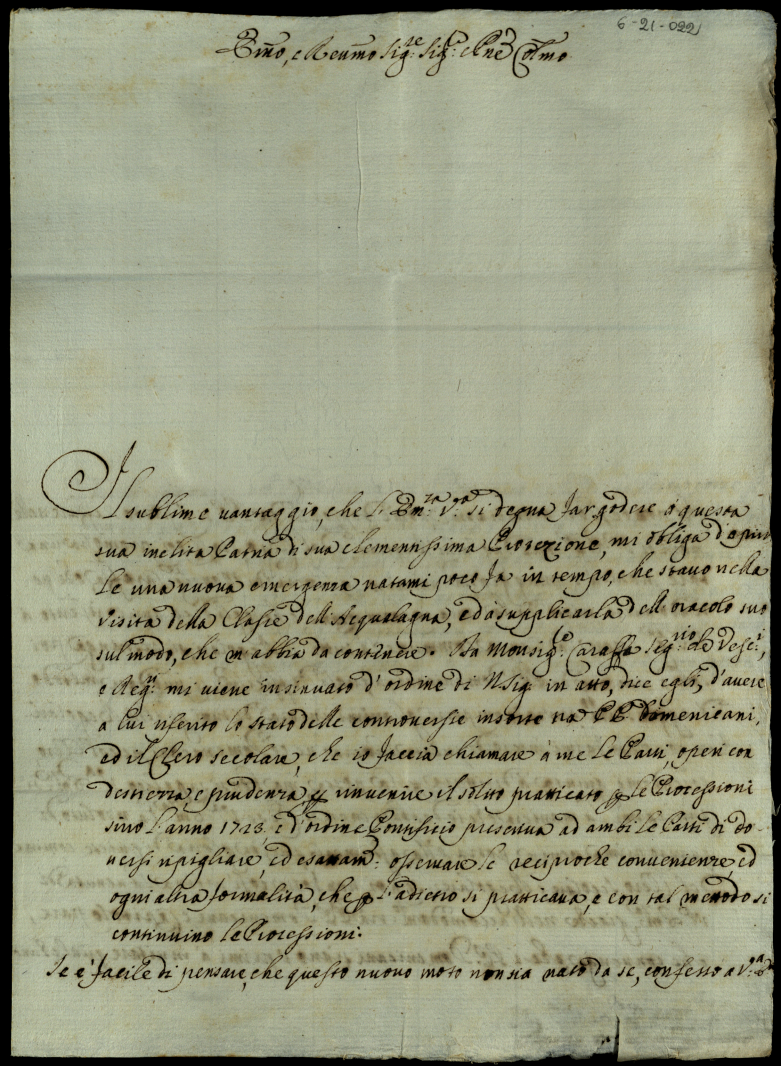 6-21-022
Emo, e Reumo Sig.re Sig.r e Pne Colmo
Il sublime vantaggio, che l'Em.za V.ra si degna far godere à questa
sua inclita Patria di sua clementissima Protezione, mi obliga d'aprir
le una nuova emergenza natami poco fa in tempo, che stavo nella
visita della Classe dell'Acqualagna, ed à supplicarla dell'oracolo suo
sul modo, che m'abbia da contenere. Da Monsig.r Caraffa Seg.rio de Vesc.i,
e Reg.ri mi viene insinuato d'ordine di N Sig.re in atto, dice egli, d'avere
a lui riferito lo stato delle controversie insorte tra PP. Domenicani,
ed il Clero secolare, che io faccia chiamare à me le Parti, operi con
destrezza, e prudenza, p rinvenire il solito pratticato p le Processioni
sino l'anno 1723, e d'ordine Pontificio prescriva ad ambi le Parti di do-
versi ripigliare, ed esattam.e osservare le reciproche convenienze, ed
ogni altra formalità, che p l'adietro si pratticava, e con tal metodo si
continuino le Processioni.
Se è facile di pensare, che questo nuovo moto non sia nato da se, confesso a V.ra